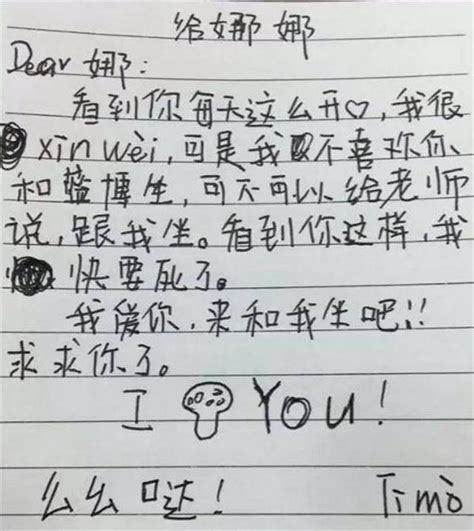 给娜娜
Dear 娜:
看到你每天这么开♡,我很
xin wèi,可是我不喜欢你
和蓝博生,可不可以给老师
说,跟我坐。看到你这样,我
快要死了。
我爱你,来和我坐吧!!
求求你了。
I You!
么么哒!
Timò